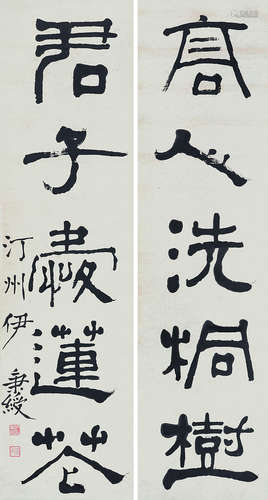 高人洗桐樹
君子愛蓮花
汀州伊秉綬